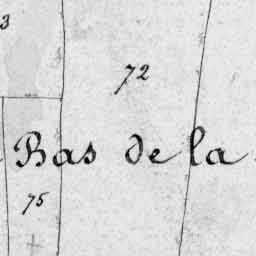 3
72
Bas de la
75